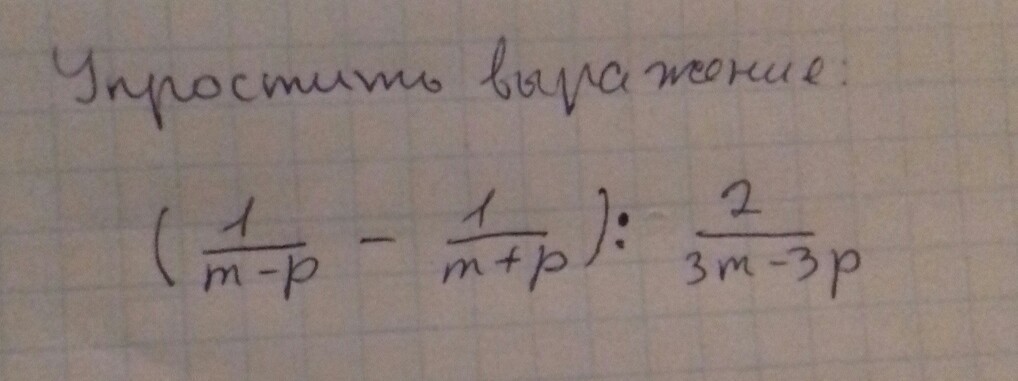 Упростить выражение:
(1/(m-p) - 1/(m+p)) : 2/(3m-3p)